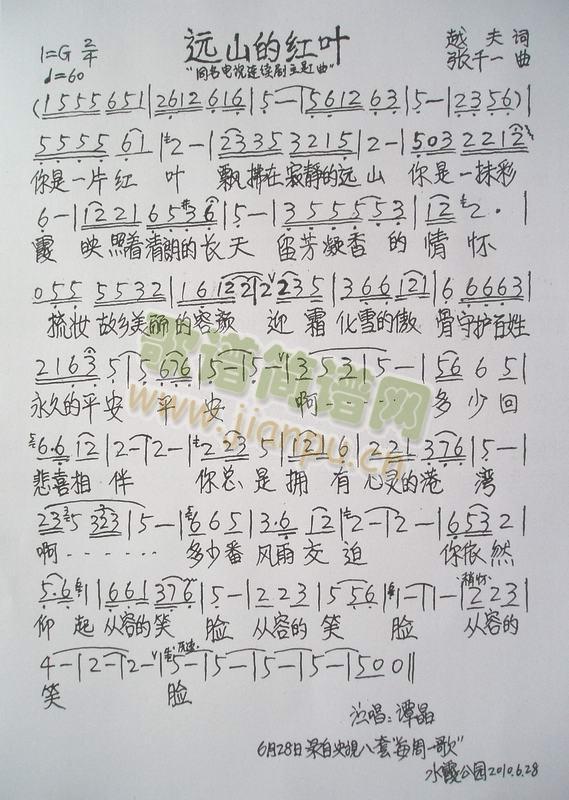 远山的红叶
"同名电视连续剧主题曲"
1=G 2/4
♩=60
越夫 词
张千一 曲
(1555651|2612616|5-|561263|5-|2356)|
555561|2-|233353215|2-|5032212|
你是一片红叶 飘拂在寂静的远山 你是一抹彩
6-|12216536|5-|3555553|122·|
霞 映照着清朗的长天 留芳凝香的情怀
055 5532|161221|22235|366121|666663|
梳妆故乡美丽的容颜 迎霜化雪的傲骨守护百姓
21635|5676|5-|5-|3532|5-|5665|
永久的平安 平安 啊…… 多少回
6·612|2-|2-|2235|12216|221376|5-|
悲喜相伴 你总是拥有心灵的港湾
235323|5-|665|3·612|2-|2-|6532|
啊…… 多少番风雨交迫 你依然
5·61|661376|5-|223|1556|1-|1-|223|
稍慢
仰起从容的笑脸 从容的笑脸 从容的
4-|2-|2-|5-|5-|5-|5-|500‖
笑 脸
演唱:谭晶
6月28日录自央视八套"每周一歌"
水霞公园2010.6.28
歌谱简谱网
www.jianpu.cn